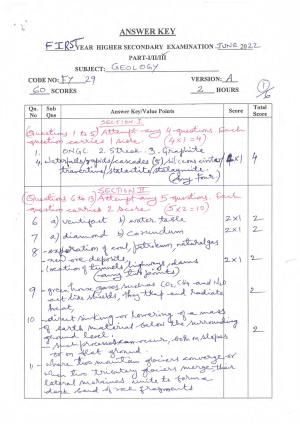 ANSWER KEY
FIRST YEAR HIGHER SECONDARY EXAMINATION JUNE 2022
PART-I/II/III
SUBJECT: GEOLOGY
CODE NO: FY 29 VERSION: A
60 SCORES 2 HOURS
Qn. No Sub Qns Answer Key/Value Points Score Total Score
SECTION I
(Questions 1 to 5) Attempt any 4 questions. Each
question carries 1 score (4x1=4)
ONGC 2. Streak 3. Graphite
4. Waterfalls/rapids/cascades (5) 4x1 4
travertine/stalactite/stalagmite
(any four)
SECTION II
(Questions 6 to 13) Attempt any 5 questions. Each
question carries 2 score (5x2=10)
6 a) ventifact b) water table 2x1 2
7 a) diamond b) corundum 2x1 2
8 - exploration of coal, petroleum, natural gas
new ore deposits, 2x1 2
- location of tunnels, highways, dams
(any two points)
9 - green house gases such as CO2, CH4
act like shields, they trap and radiate
heat, 2
10 - direct sinking or lowering of a mass
of earth material below the surrounding
ground level, 2
- such processes can occur both on slopes
or on flat ground
11 - where two mountain glaciers converge or
when two tributary glaciers merge, their
lateral moraines unite to form a
of rock fragments 2